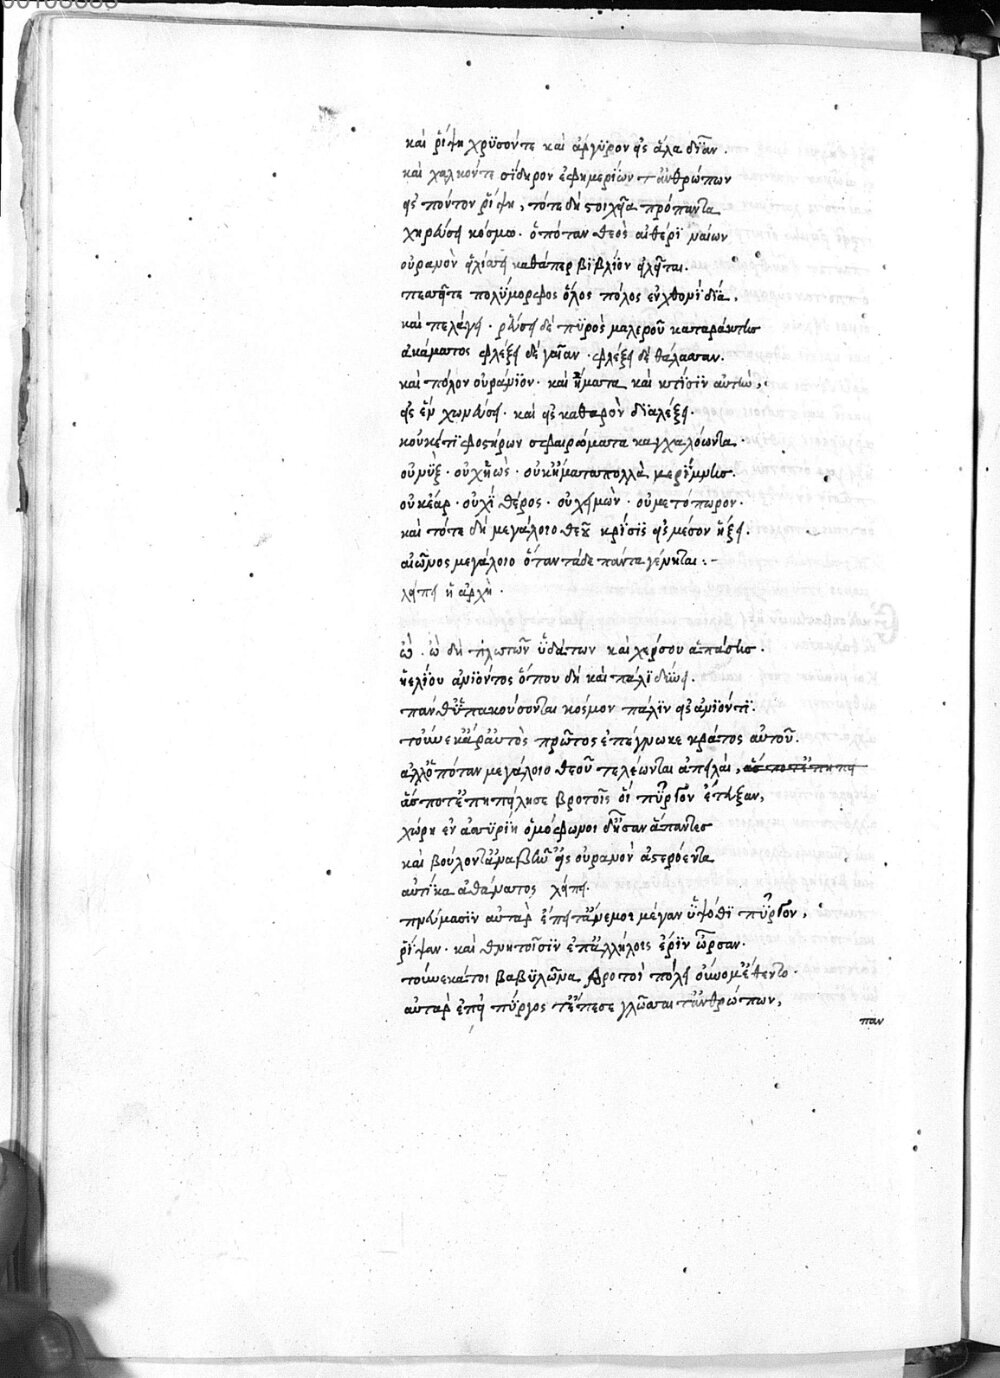 καὶ ῥίψη χρϋσόντε καὶ ἀργϋρον εἰς ἅλα δῖαν.
καὶ χαλκόντε σίδηρον ἐφημερίων τ' ἀνθρώπων
εἰς πόντον ῥίψη, τότε δὴ στοιχεῖα πρόπαντα
χηρεύσει κόσμω. ὁπόταν θεὸς αἰθέρϊ ναίων
οὐρανὸν εἱλίσσῃ καθάπερ βϊβλίον εἰλεῖται.
πεσεῖτε πολϋμορφος ὅλος πόλος ἐν χθονὶ δία,
καὶ πελάγει. ῥεύσει δὲ πϋρὸς μαλεροῦ καταράκτης
ἀκάματος φλέξει δὲ γαῖαν. φλέξει δὲ θάλασσαν.
καὶ πόλον οὐράνϊον. καὶ ἤματα καὶ κτίσϊν αὐτὼ,
εἰς ἓν χωνεύσει. καὶ εἰς καθαρὸν δϊαλέξει.
κοὐκέτϊ φωστήρων σφαιρώματα καγχαλόωντα.
οὐ νὺξ. οὐχ ἠὼς. οὐκ ἤματα πολλὰ μερίμνης.
οὐκ ἔαρ. οὐχὶ θέρος. οὐ χειμὼν. οὐ μετόπωρον.
καὶ τότε δὴ μεγάλοιο θεοῦ κρίσϊς εἰς μέσον ἥξει.
αἰῶνος μεγάλοιο ὅταν τάδε πάντα γένηται:-
λείπει ἡ ἀρχὴ.
ὢ. ὢ δὴ πλωτῶν ὑδάτων καὶ χέρσου ἁπάσης.
ἠελίου ἀνϊόντος ὅπου δὴ καὶ πάλϊ δύνει.
πάνθ' ὑπακούσονται κόσμον πάλϊν εἰσανϊόντϊ.
τοὔνεκ' ἄρ' αὐτὸς πρῶτος ἐπέγνωκε κράτος αὐτοῦ.
ἀλλ' ὁπόταν μεγάλοιο θεοῦ τελέωνται ἀπειλαὶ, ἅς ποτ' ἐπηπει
ἅς ποτ' ἐπηπείλησε βροτοῖς οἳ πύργον ἔτευξαν,
χώρη ἐν ἀσσυρίη ὁμόφωνοι δ' ἦσαν ἅπαντες
καὶ βούλοντ' ἀναβῆν' εἰς οὐρανὸν ἀστερόεντα
αὐτίκα ἀθάνατος λείπει.
πνεύμασϊν αὐτὰρ ἔπειτ' ἄνεμοι μέγαν ὑψόθϊ πύργον,
ῥίψαν. καὶ θνητοῖσϊν ἐπ' ἀλλήλοις ἔρϊν ὦρσαν.
τοὔνεκά τοι βαβϋλῶνα βροτοὶ πόλει οὔνομ' ἔθεντο.
αὐτὰρ ἐπεὶ πύργος τ' ἔπεσε γλῶσσαι τ' ἀνθρώπων,
παν